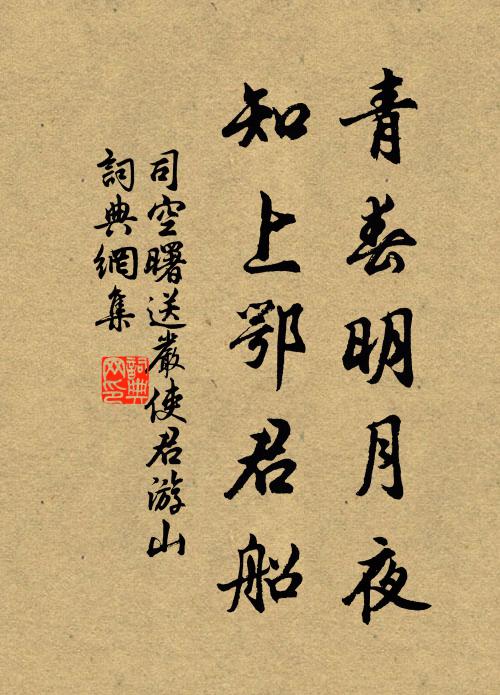 青春明月夜
知上鄂君船
司空曙送嚴使君游山
詞典網集
詞典網印